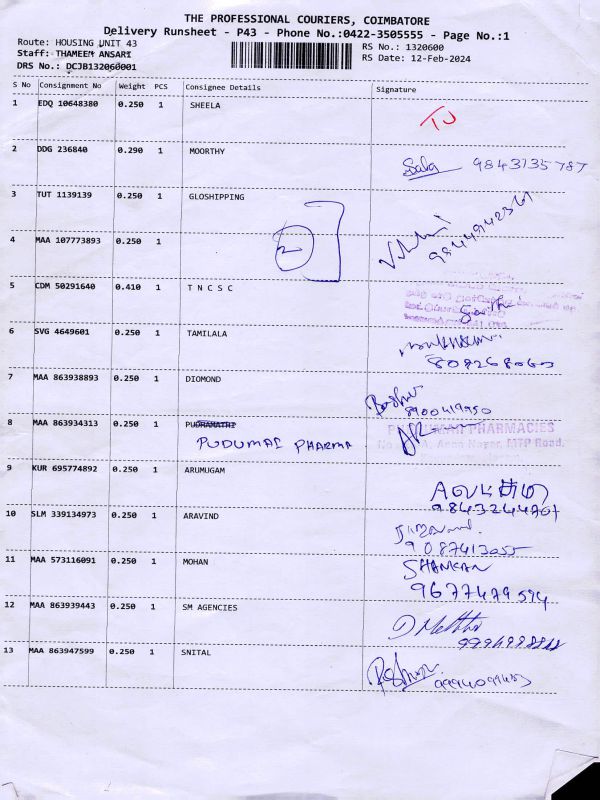 THE PROFESSIONAL COURIERS, COIMBATORE
Delivery Runsheet - P43 - Phone No.:0422-3505555 - Page No.:1
Route: HOUSING UNIT 43
Staff: THAMEEM ANSARI
DRS No.: DCJB132060001
RS No.: 1320600
RS Date: 12-Feb-2024
S No Consignment No Weight PCS Consignee Details Signature
1 EDQ 10648380 0.250 1 SHEELA
TJ
2 DDG 236840 0.290 1 MOORTHY
9843135787
3 TUT 1139139 0.250 1 GLOSHIPPING
2
4 MAA 107773893 0.250 1
5 CDM 50291640 0.410 1 T N C S C
6 SVG 4649601 0.250 1 TAMILALA
8082680603
7 MAA 863938893 0.250 1 DIOMOND
8900419950
8 MAA 863934313 0.250 1
PUDUMAI PHARMA
PHARMACIES
Nagar, MTP Road.
9 KUR 695774892 0.250 1 ARUMUGAM
10 SLM 339134973 0.250 1 ARAVIND
9087413055
11 MAA 573116091 0.250 1 MOHAN
SHANKAR
9677479594
12 MAA 863939443 0.250 1 SM AGENCIES
13 MAA 863947599 0.250 1 SNITAL